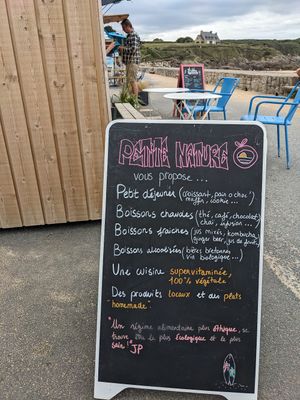 PETITE NATURE
vous propose ...
Petit déjeuner (croissant, pain o choc'
muffin, cookie ...
Boissons chaudes (thé, café, chocolat
chai, infusion ...
Boissons fraîches (jus mixés, kombucha,
ginger beer, jus de fruits,
Boissons alcoolisées (bières bretonnes
vin biologique ...)
Une cuisine supervitaminée,
100% végétale
Des produits locaux et des plats
"homemade."
"Un régime alimentaire plus éthique, se
trouve être le plus écologique et le plus
sain!" JP